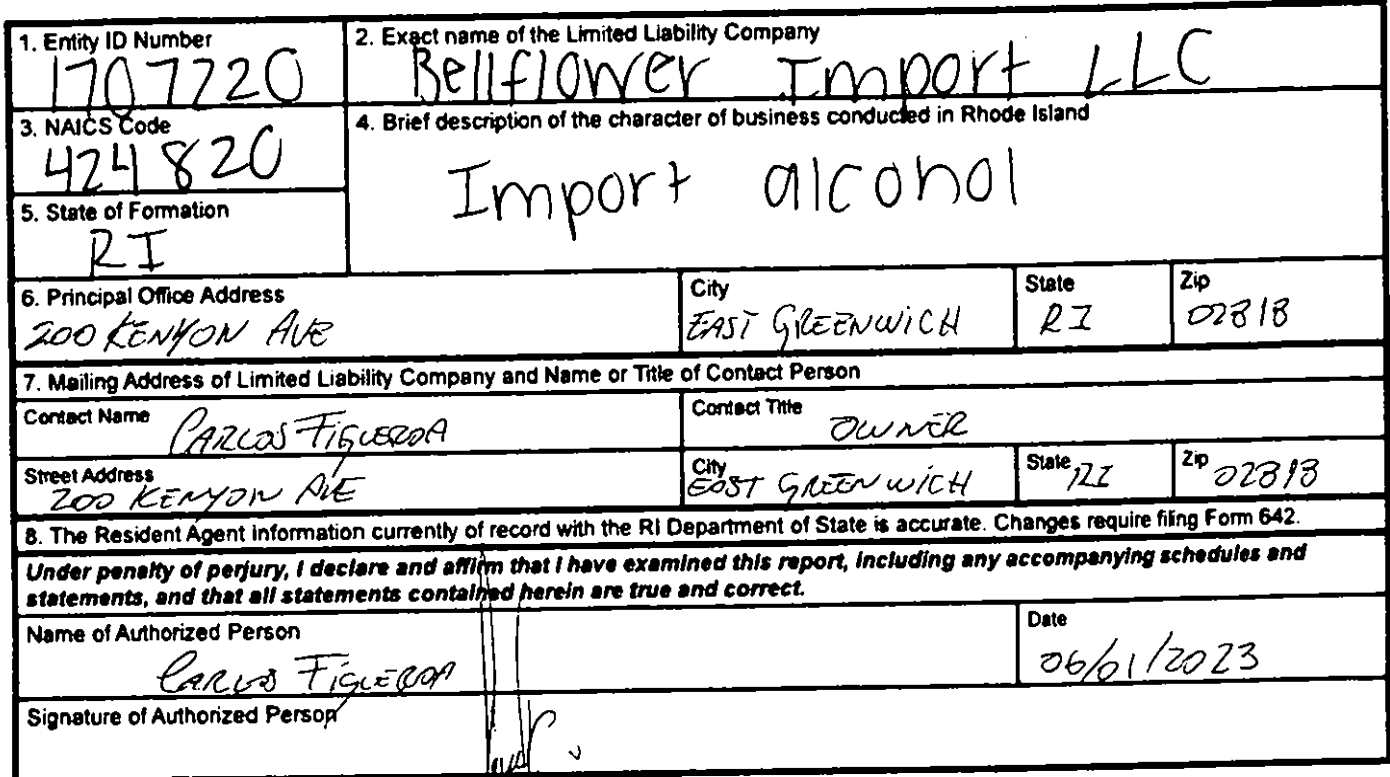 1. Entity ID Number
1707720
2. Exact name of the Limited Liability Company
Bellflower Import LLC
3. NAICS Code
424820
4. Brief description of the character of business conducted in Rhode Island
Import alcohol
5. State of Formation
RI
6. Principal Office Address
200 KENYON AVE
City
EAST GREENWICH
State
RI
Zip
02818
7. Mailing Address of Limited Liability Company and Name or Title of Contact Person
Contact Name
CARLOS FIGUEROA
Contact Title
OWNER
Street Address
200 KENYON AVE
City
EAST GREENWICH
State
RI
Zip
02818
8. The Resident Agent information currently of record with the RI Department of State is accurate. Changes require filing Form 642.
Under penalty of perjury, I declare and affirm that I have examined this report, including any accompanying schedules and
statements, and that all statements contained herein are true and correct.
Name of Authorized Person
CARLOS FIGUEROA
Date
06/01/2023
Signature of Authorized Person